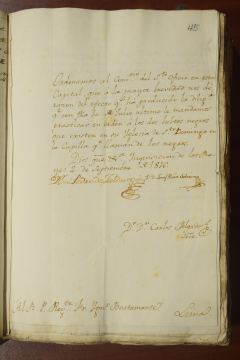 45
Ordenamos al Com.rio del S.to Oficio en esta
Capital, que a la mayor brevedad nos dé
razon del efecto q.e ha producido la dilig.a
q.e con fha de Julio ultimo le mandamos
practicar en orden a los dos bultos negros
que existen en su Iglesia de S.to Domingo en
la Capilla q.e llaman de los negros.
Dios gue Inquisicion de los Reyes
2 de Septiembre de 1816
D.r D.n Carlos
Al R. P. Fr. Jph. Bustamante
Lima